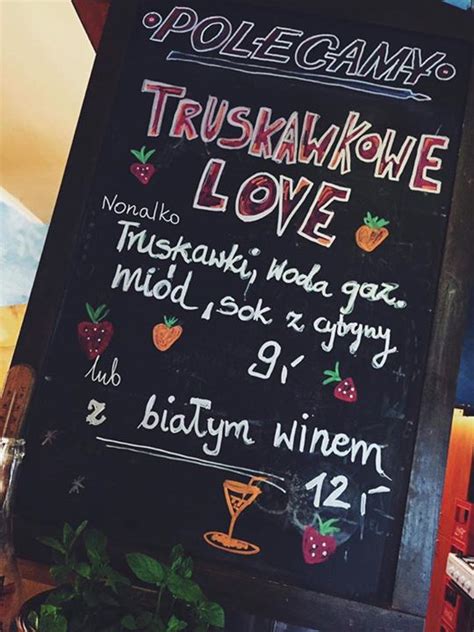 POLECAMY
TRUSKAWKOWE
LOVE
Nonalko
Truskawki, woda gaz.
miód, sok z cytryny
9,-
lub
z białym winem
12,-